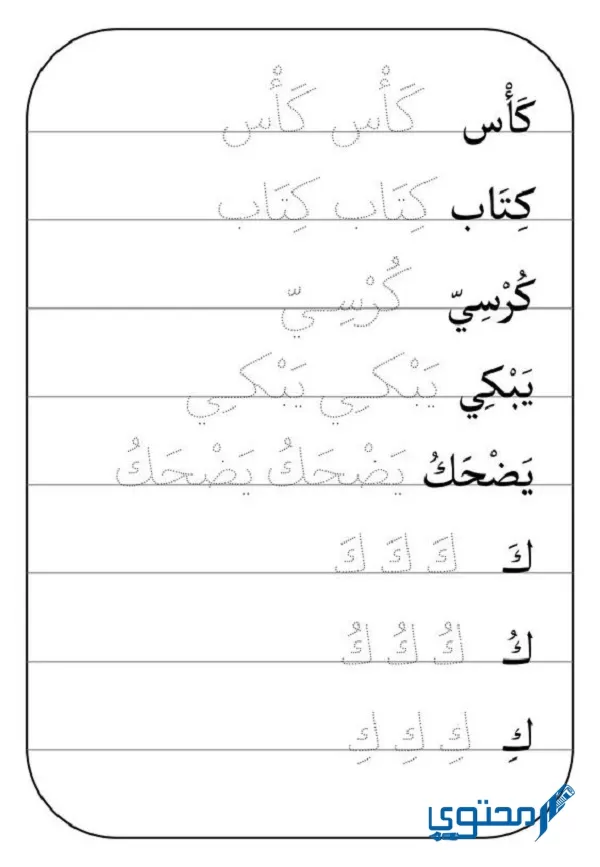 كَأْس كَأْس كَأْس
كِتَاب كِتَاب كِتَاب
كُرْسِيّ كُرْسِيّ
يَبْكِي يَبْكِي يَبْكِي
يَضْحَكُ يَضْحَكُ يَضْحَكُ
كَ كَ كَ كَ
كُ كُ كُ كُ
كِ كِ كِ كِ
محتوى